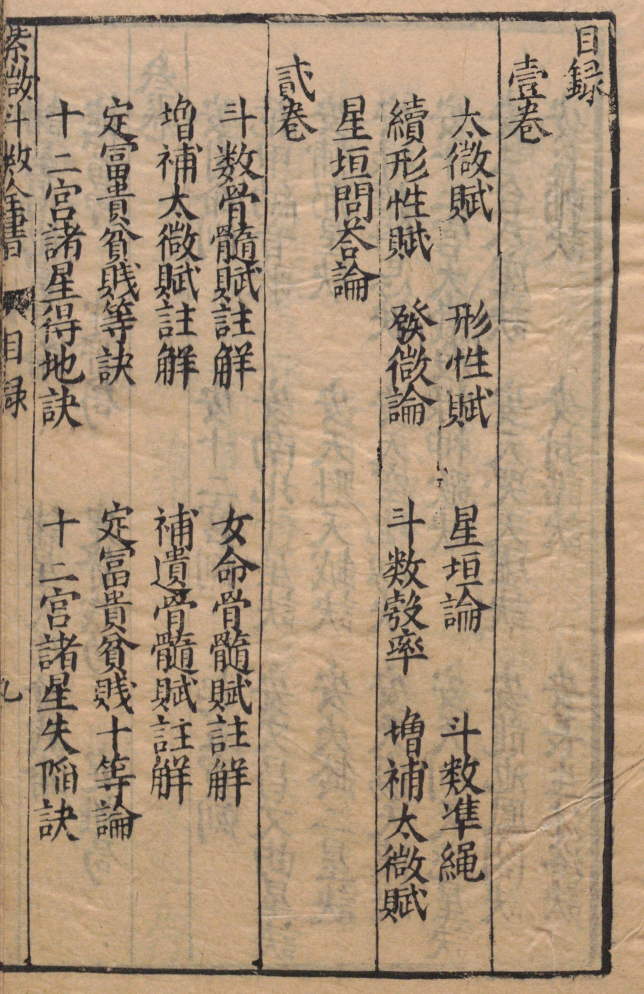 目録
壹卷
太微賦 形性賦 星垣論 斗數準繩
續形性賦 發微論 斗數彀率 增補太微賦
星垣問荅論
貳卷
斗數骨髓賦註解 女命骨髓賦註解
增補太微賦註解 補遺骨髓賦註解
定富貴貧賤等訣 定富貴貧賤十等論
十二宮諸星得地訣 十二宮諸星失陷訣
紫微斗數全書 目録 九